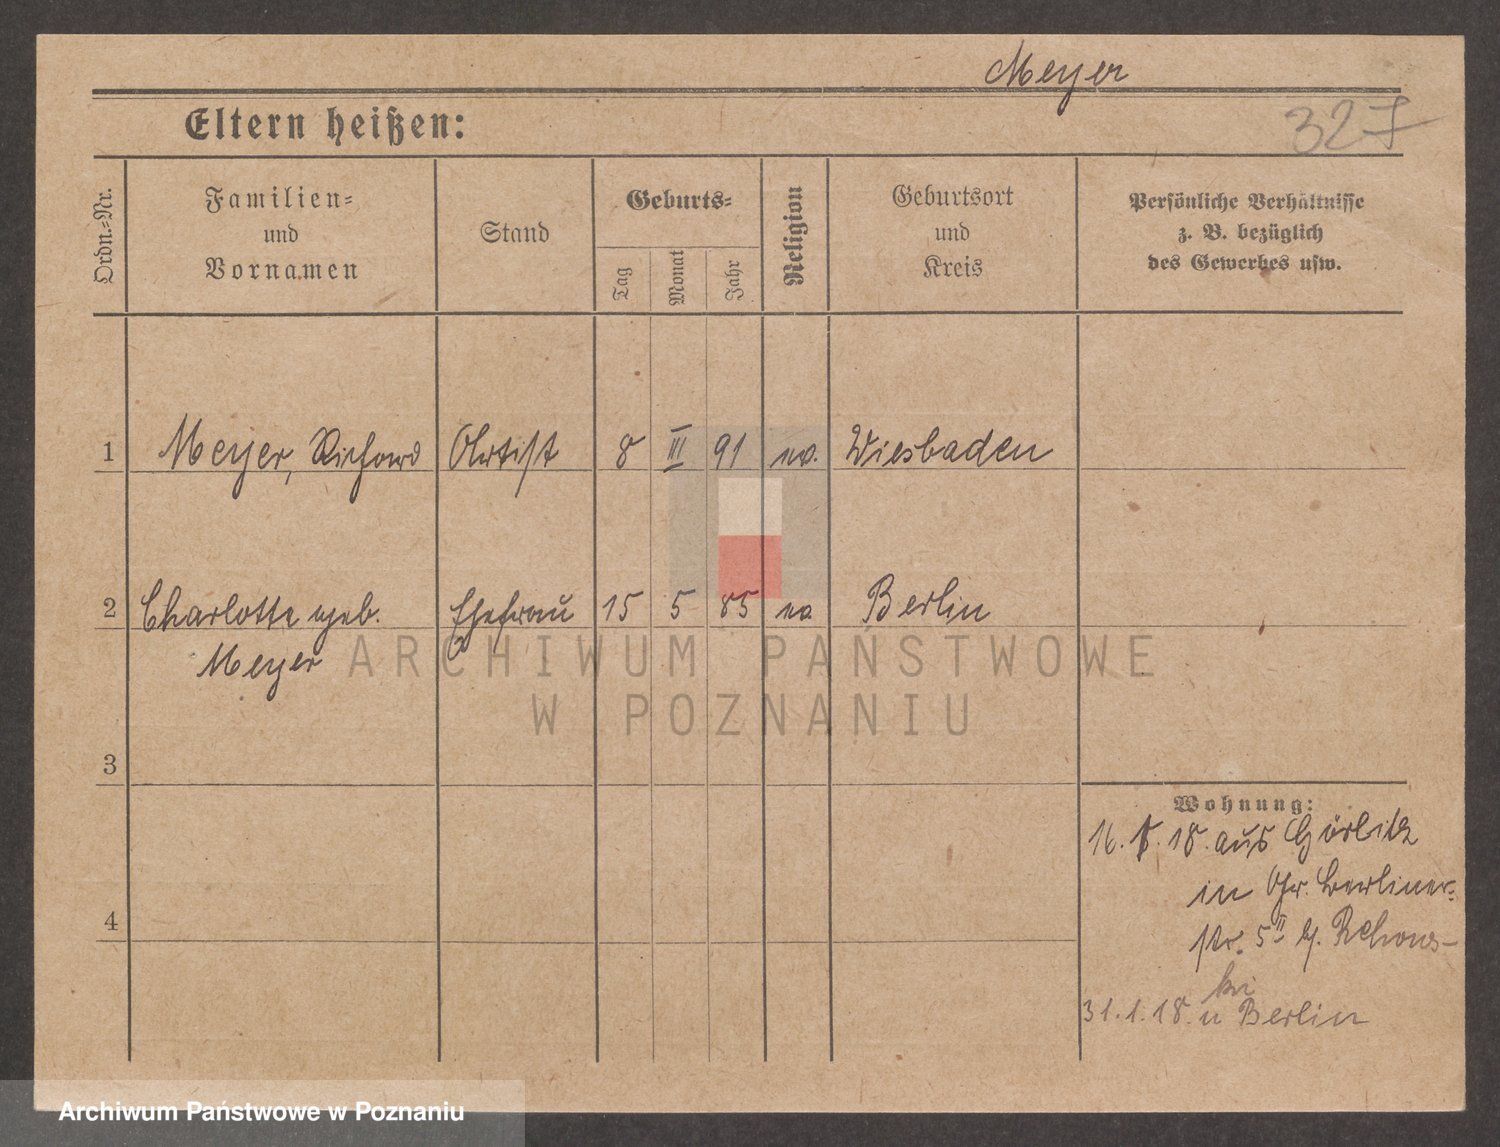 Meyer
327
Eltern heißen:
Ordn.-Nr.
Familien-
und
Vornamen
Stand
Geburts-
Tag
Monat
Jahr
Religion
Geburtsort
und
Kreis
Persönliche Verhältnisse
z. B. bezüglich
des Gewerbes usw.
1 Meyer, Richard Artist 8 III 91 ev. Wiesbaden
2 Charlotte geb. Ehefrau 15 5 85 ev. Berlin
Meyer
ARCHIWUM PAŃSTWOWE
W POZNANIU
3
Wohnung:
16. 1. 18. aus Görlitz
in Gr. Berliner-
str. 5 II
4
31.1.18. n Berlin
Archiwum Państwowe w Poznaniu